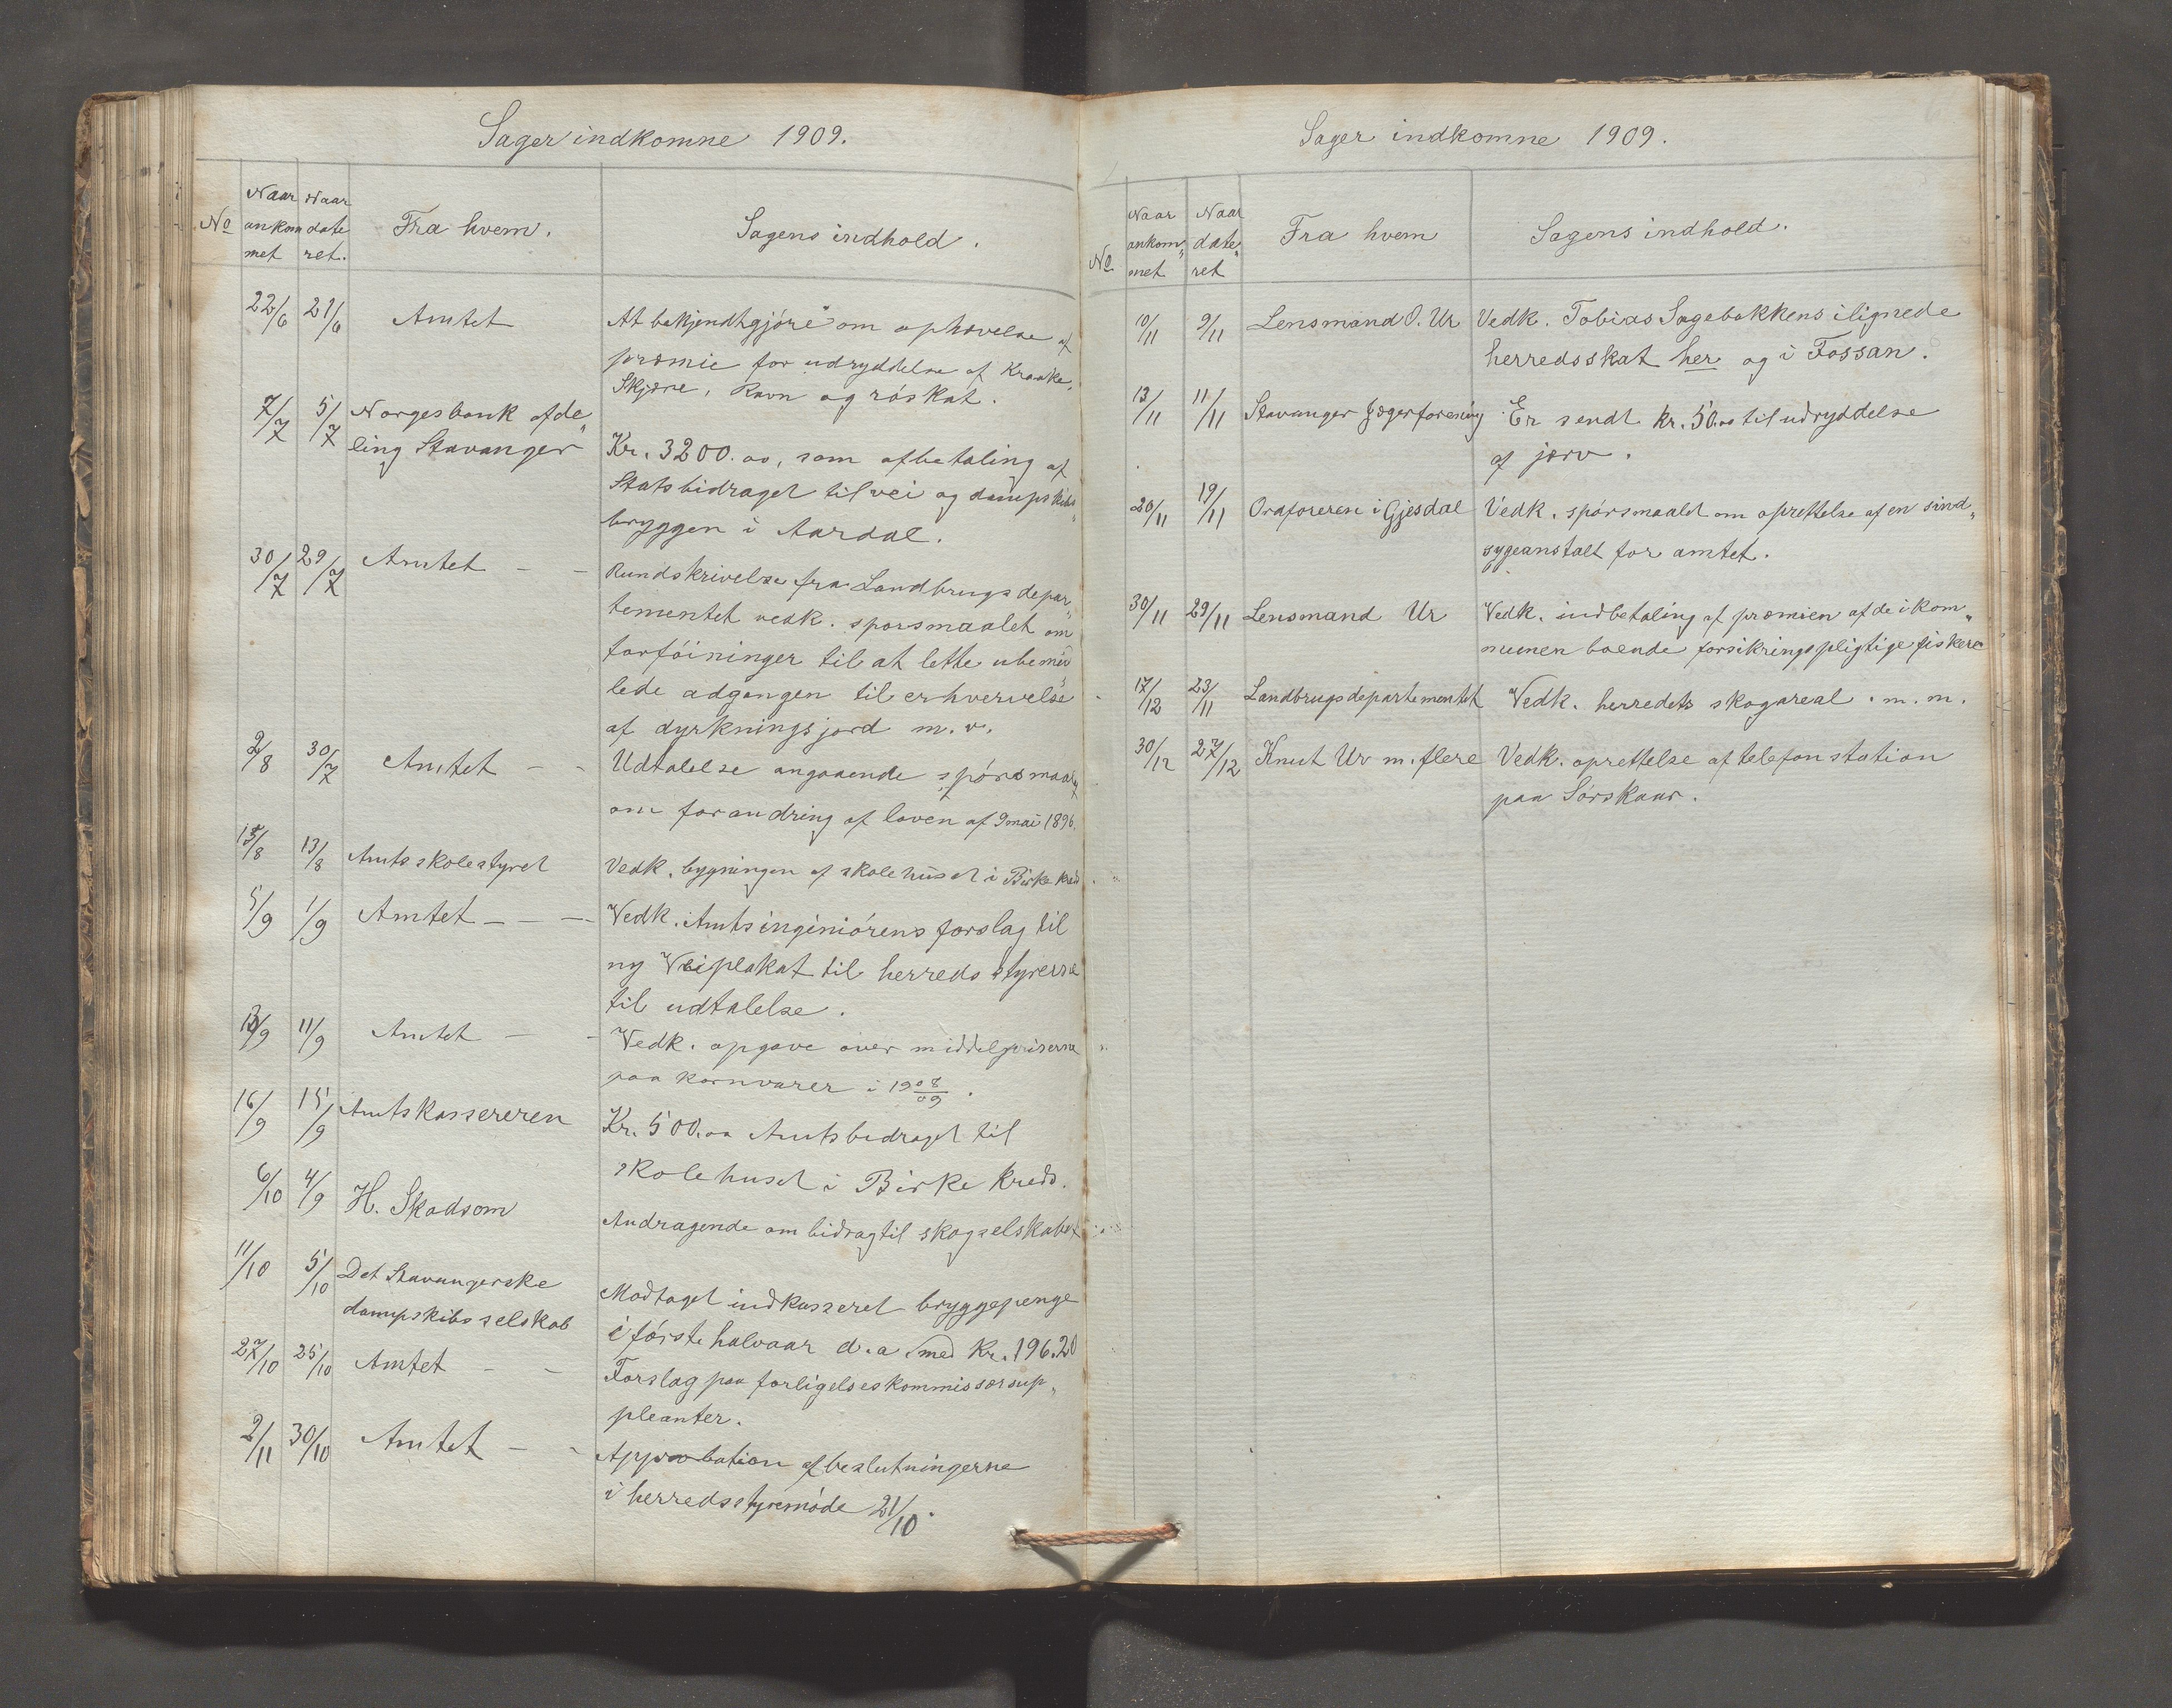 Sager indkomne 1909.
No
Naar ankommet
Naar dateret.
Fra hvem.
Sagens indhold.
22/6 21/6 Amtet At bekjendtgjöre om ophævelse af
præmie for udryddelse af Kraake,
Skjære, Ravn og röskat.
7/7 5/7 Norges bank afde„
ling Stavanger
Kr. 3200.00, som afbetaling af
Statsbidraget til vei og dampskibs„
bryggen i Aardal.
30/7 29/7 Amtet — — Rundskrivelse fra Landbrugsdepar„
tementet vedk. sporsmaalet om
forföininger til at lette ubemid„
lede adgangen til erhvervelse
af dyrkningsjord m. v.
2/8 30/7 Amtet — — Udtalelse angaaende spörsmaal
om forandring af loven af 9 mai 1896.
15/8 13/8 Amtsskolestyret Vedk. bygningen af skolehuset i Birke kred
5/9 1/9 Amtet — — — Vedk. Amtsingeniörens forslag til
ny Veiplakat til herredsstyrerne
til udtalelse.
/9 11/9 Amtet — — Vedk. opgave over middelpriserne
paa kornvarer i 1908/09.
16/9 15/9 Amtskassereren Kr. 500.00 Amtsbidraget til
skolehuset i Birke kreds.
6/10 4/9 H. Skadsom Andragende om bidrag til skogselskabet
11/10 5/10 Det Stavangerske
dampskibsselskab
Modtaget indkasseret bryggepenge
i förste halvaar d.a. med Kr. 196.20
27/10 25/10 Amtet — — Forslag paa forligelseskommissærsup„
pleanter.
2/11 30/10 Amtet — — Approbation af beslutningerne
i herredsstyremöde 21/10.
Sager indkomne 1909.
No
Naar ankom„met
Naar date„ret
Fra hvem
Sagens indhold.
10/11 9/11 Lensmand O. Ur Vedk. Tobias Sagebakkens ilignede
herredsskat her og i Fossan.
13/11 11/11 Stavanger Jægerforening Er sendt kr. 50.00 til udryddelse
af jærv.
20/11 19/11 Ordföreren i Gjesdal Vedk. spörsmaalet om oprettelse af en sind„
sygeanstalt for amtet.
30/11 29/11 Lensmand Ur Vedk. indbetaling af præmien af de i kom„
munen boende forsikringspligtige fiskere
17/12 23/11 Landbrugsdepartementet Vedk. herredets skogareal . m. m.
30/12 27/12 Knut Ur m. flere Vedk. oprettelse af telefonstation
paa Sörskaar.